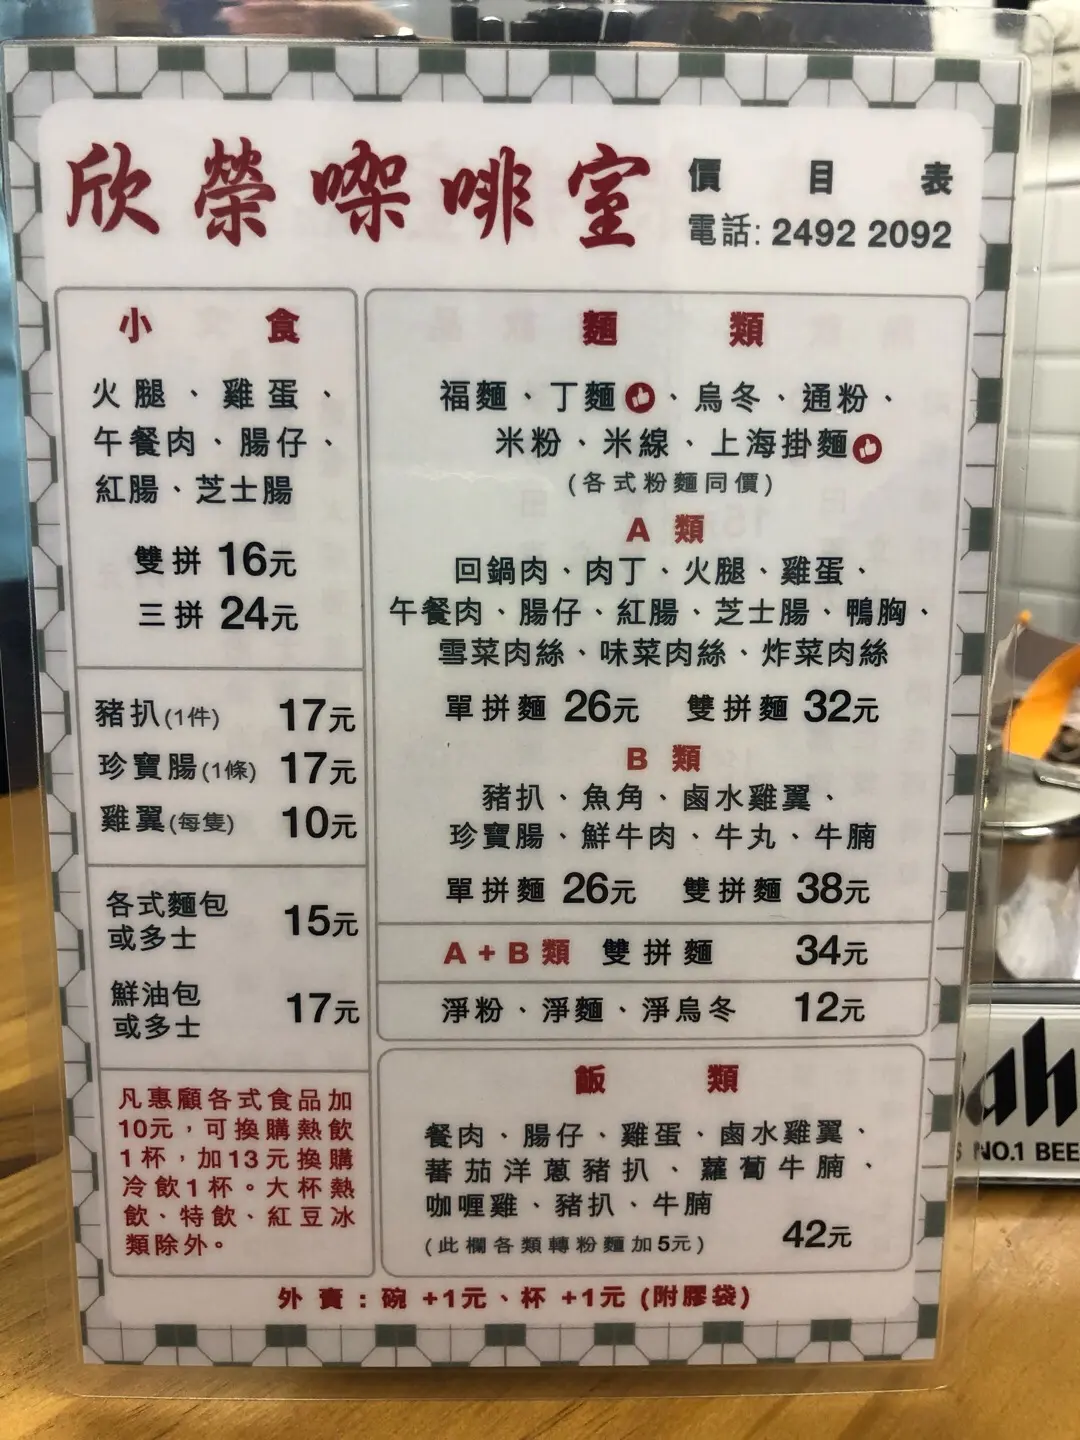 欣榮㗎啡室
價目表
電話: 2492 2092
小食
火腿、雞蛋、
午餐肉、腸仔、
紅腸、芝士腸
雙拼 16元
三拼 24元
豬扒(1件) 17元
珍寶腸(1條) 17元
雞翼(每隻) 10元
各式麵包
或多士 15元
鮮油包
或多士 17元
凡惠顧各式食品加
10元，可換購熱飲
1杯，加13元換購
冷飲1杯。大杯熱
飲、特飲、紅豆冰
類除外。
麵類
福麵、丁麵、烏冬、通粉、
米粉、米線、上海掛麵
(各式粉麵同價)
A 類
回鍋肉、肉丁、火腿、雞蛋、
午餐肉、腸仔、紅腸、芝士腸、鴨胸、
雪菜肉絲、味菜肉絲、炸菜肉絲
單拼麵 26元 雙拼麵 32元
B 類
豬扒、魚角、鹵水雞翼、
珍寶腸、鮮牛肉、牛丸、牛腩
單拼麵 26元 雙拼麵 38元
A+B類 雙拼麵 34元
淨粉、淨麵、淨烏冬 12元
飯類
餐肉、腸仔、雞蛋、鹵水雞翼、
蕃茄洋蔥豬扒、蘿蔔牛腩、
咖喱雞、豬扒、牛腩
(此欄各類轉粉麵加5元) 42元
外賣：碗 +1元、杯 +1元 (附膠袋)
NO.1 BEE